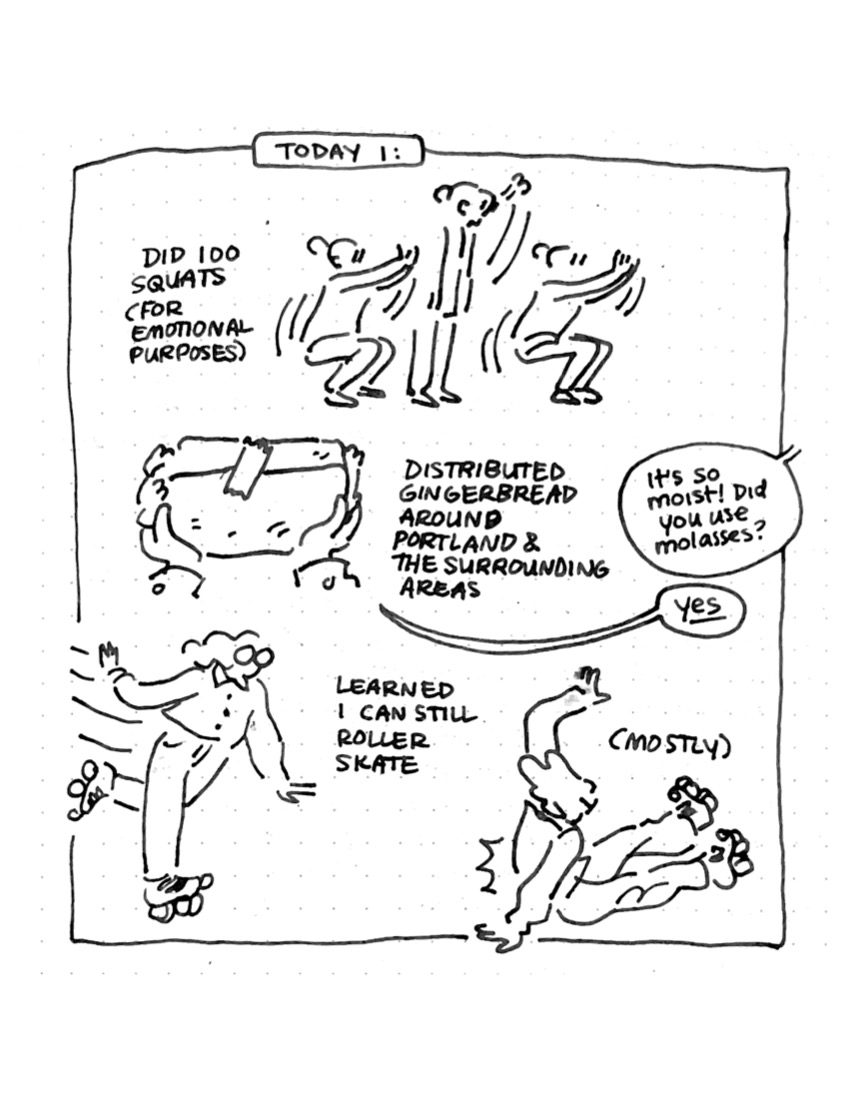 TODAY I:
DID 100
SQUATS
(FOR
EMOTIONAL
PURPOSES)
DISTRIBUTED
GINGERBREAD
AROUND
PORTLAND &
THE SURROUNDING
AREAS
It's so
moist! Did
you use
molasses?
yes
LEARNED
I CAN STILL
ROLLER
SKATE
(MOSTLY)